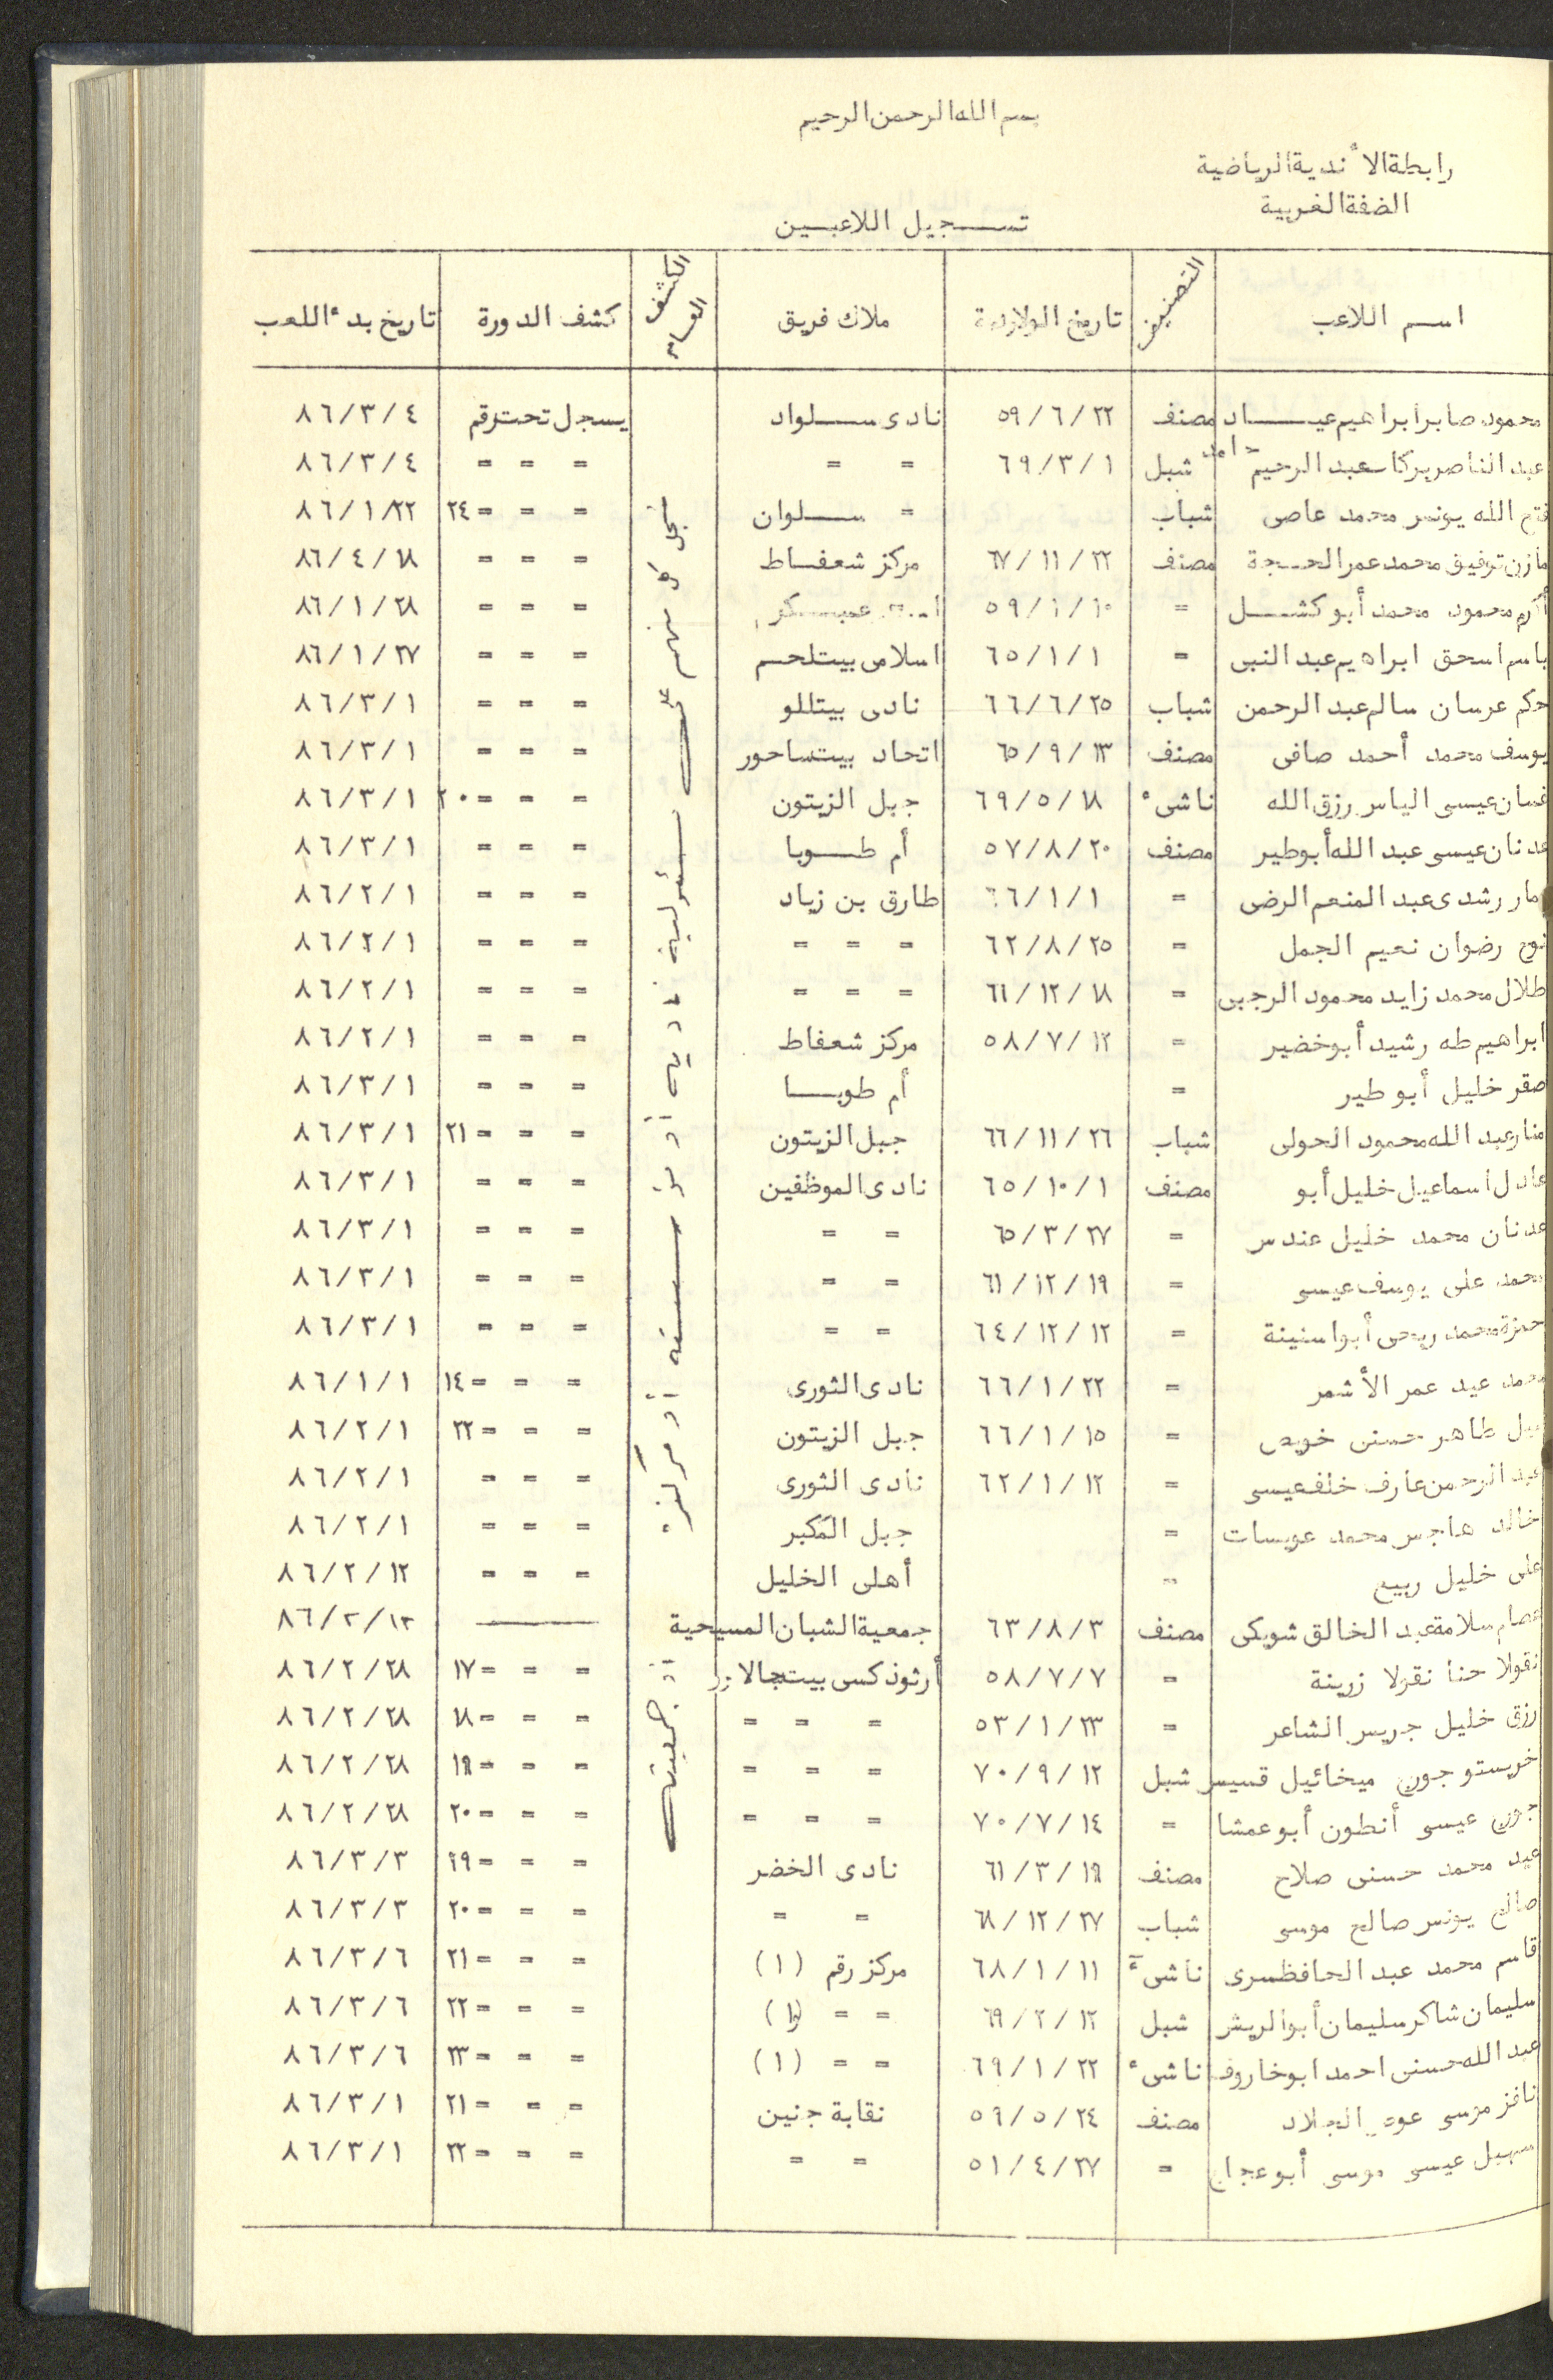 بسم الله الرحمن الرحيم
رابطة الأندية الرياضية
الضفة الغربية
تسجيل اللاعبين
اسم اللاعب التصنيف تاريخ الولادة ملاك فريق الكشف العام كشف الدورة تاريخ بدء اللعب
محمود صابر ابراهيم عياد مصنف ٥٩/٦/٢٢ نادى سلواد يسجل تحت رقم ٨٦/٣/٤
عبد الناصر بركات عبد الرحيم حامد شبل ٦٩/٣/١ = = = = = ٨٦/٣/٤
فتح الله يونس محمد عاصى شباب = سلوان = = = ٢٤ ٨٦/١/٢٢
مازن توفيق محمد عمر الحجة مصنف ٦٧/١١/٢٢ مركز شعفاط = = = ٨٦/٤/١٨
أكرم محمود محمد أبو كشل = ٥٩/١/١٠ عسكر = = = ٨٦/١/٢٨
باسم اسحق ابراهيم عبد النبى = ٦٥/١/١ اسلامى بيت لحم = = = ٨٦/١/٢٧
حكم عرسان سالم عبد الرحمن شباب ٦٦/٦/٢٥ نادى بيتللو = = = ٨٦/٣/١
يوسف محمد أحمد صافى مصنف ٦٥/٩/١٣ اتحاد بيت ساحور = = = ٨٦/٣/١
غسان عيسى الياس رزق الله ناشىء ٦٩/٥/١٨ جبل الزيتون = = = ٢٠ ٨٦/٣/١
عدنان عيسى عبد الله أبو طير مصنف ٥٧/٨/٢٠ أم طوبا = = = ٨٦/٣/١
رشدى عبد المنعم الرضى = ٦٦/١/١ طارق بن زياد = = = ٨٦/٢/١
نوح رضوان نعيم الجمل = ٦٢/٨/٢٥ = = = = = = ٨٦/٢/١
طلال محمد زايد محمود الرجبى = ٦١/١٢/١٨ = = = = = = ٨٦/٢/١
ابراهيم طه رشيد أبو خضير = ٥٨/٧/١٢ مركز شعفاط = = = ٨٦/٢/١
صقر خليل أبو طير = أم طوبا = = = ٨٦/٣/١
منار عبد الله محمود الحولى شباب ٦٦/١١/٢٦ جبل الزيتون = = = ٢١ ٨٦/٣/١
عادل اسماعيل خليل أبو مصنف ٦٥/١٠/١ نادى الموظفين = = = ٨٦/٣/١
عدنان محمد خليل عندس = ٦٥/٣/٢٧ = = = = = ٨٦/٣/١
محمد على يوسف عيسى = ٦١/١٢/١٩ = = = = = ٨٦/٣/١
حمزة محمد ربحى أبو اسنينة = ٦٤/١٢/١٢ = = = = = ٨٦/٣/١
محمد عيد عمر الأشمر = ٦٦/١/٢٢ نادى الثورى = = = ١٤ ٨٦/١/١
طاهر حسنى خويص = ٦٦/١/١٥ جبل الزيتون = = = ٢٢ ٨٦/٢/١
عبد الرحمن عارف خلف عيسى = ٦٢/١/١٢ نادى الثورى = = = ٨٦/٢/١
خالد هاجس محمد عويسات = جبل المكبر = = = ٨٦/٢/١
على خليل ربيع = أهلى الخليل = = = ٨٦/٢/١٢
عصام سلامة عبد الخالق شويكى مصنف ٦٣/٨/٣ جمعية الشبان المسيحية ـــــ ٨٦/٢/١٢
نقولا حنا نقولا زرينة = ٥٨/٧/٧ أرثوذكسى بيت جالا = = = ١٧ ٨٦/٢/٢٨
رزق خليل جريس الشاعر = ٥٣/١/٢٣ = = = = = = ١٨ ٨٦/٢/٢٨
خريستو جورج ميخائيل قسيس شبل ٧٠/٩/١٢ = = = = = = ١٩ ٨٦/٢/٢٨
جورج عيسى أنطون أبو عمشا = ٧٠/٧/١٤ = = = = = = ٢٠ ٨٦/٢/٢٨
عيد محمد حسنى صلاح مصنف ٦١/٣/١٩ نادى الخضر = = = ١٩ ٨٦/٣/٣
صالح يونس صالح موسى شباب ٦٨/١٢/٢٧ = = = = = ٢٠ ٨٦/٣/٣
قاسم محمد عبد الحافظ سرى ناشىء ٦٨/١/١١ مركز رقم (١) = = = ٢١ ٨٦/٣/٦
سليمان شاكر سليمان أبو الريش شبل ٦٩/٢/١٢ = = (١) = = = ٢٢ ٨٦/٣/٦
عبد الله حسنى احمد ابو خاروف ناشىء ٦٩/١/٢٢ = = (١) = = = ٢٣ ٨٦/٣/٦
نافز موسى الجلاد مصنف ٥٩/٥/٢٤ نقابة جنين = = = ٢١ ٨٦/٣/١
سهيل عيسى موسى أبو عجاج = ٥١/٤/٢٧ = = = = = ٢٢ ٨٦/٣/١
سجل كل منهم على مسئولية ناديه أو مؤسسته أو مركزه أو جمعيته